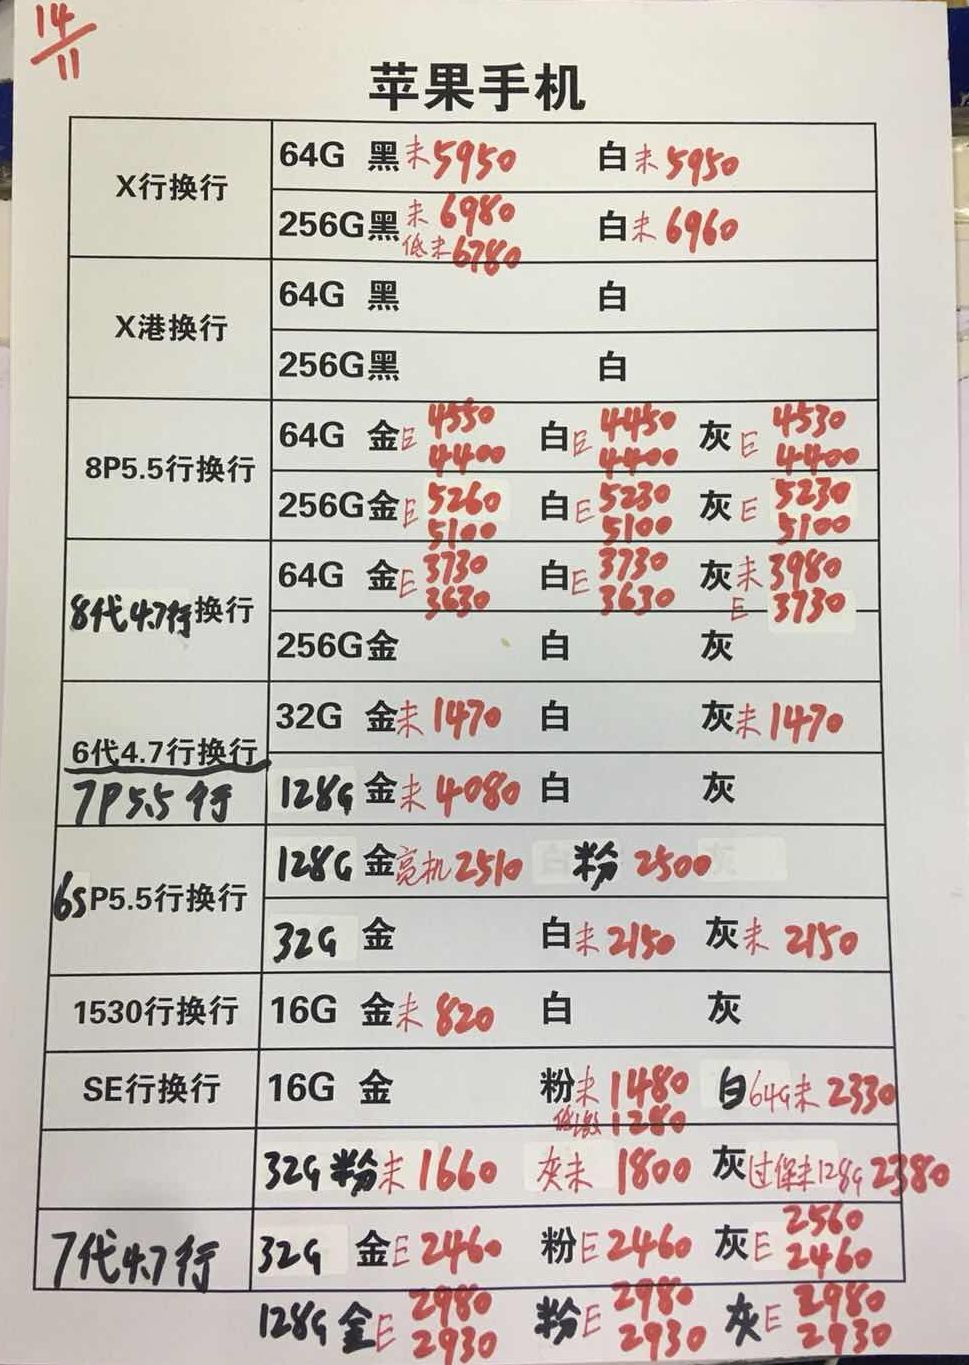 14/11
苹果手机
X行换行
64G 黑 未 5950 白 未 5950
256G 黑 未 6980 白 未 6960
低未 6780
X港换行
64G 黑 白
256G 黑 白
8P5.5行换行
64G 金 E 4550 4400 白 E 4450 4400 灰 E 4530 4400
256G 金 E 5260 5100 白 E 5230 5100 灰 E 5230 5100
8代4.7行换行
64G 金 E 3730 3630 白 E 3730 3630 灰 未 3980 E 3730
256G 金 白 灰
6代4.7行换行
32G 金 未 1470 白 灰 未 1470
7P5.5行
128G 金 未 4080 白 灰
6SP5.5行换行
128G 金 亮机 2510 粉 2500
32G 金 白 未 2150 灰 未 2150
1530行换行
16G 金 未 820 白 灰
SE行换行
16G 金 粉 未 1480 白 64G 未 2330
低激 1280
32G 粉 未 1660 灰 未 1800 灰 过保未 128G 2380
7代4.7行
32G 金 E 2460 粉 E 2460 灰 E 2560 2460
128G 金 E 2980 2930 粉 E 2980 2930 灰 E 2980 2930